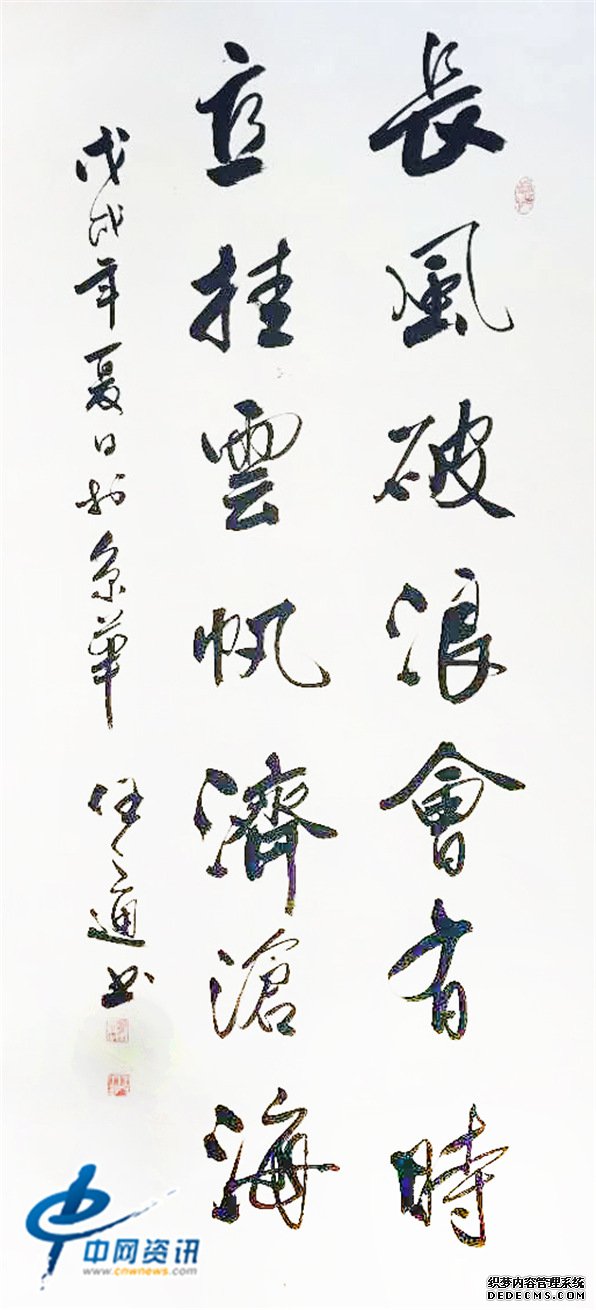 長風破浪會有時
直挂雲帆濟滄海
戊戌年夏日於京華
通书
中网资讯
www.cnwnews.com
织梦内容管理系统
DEDECMS.COM